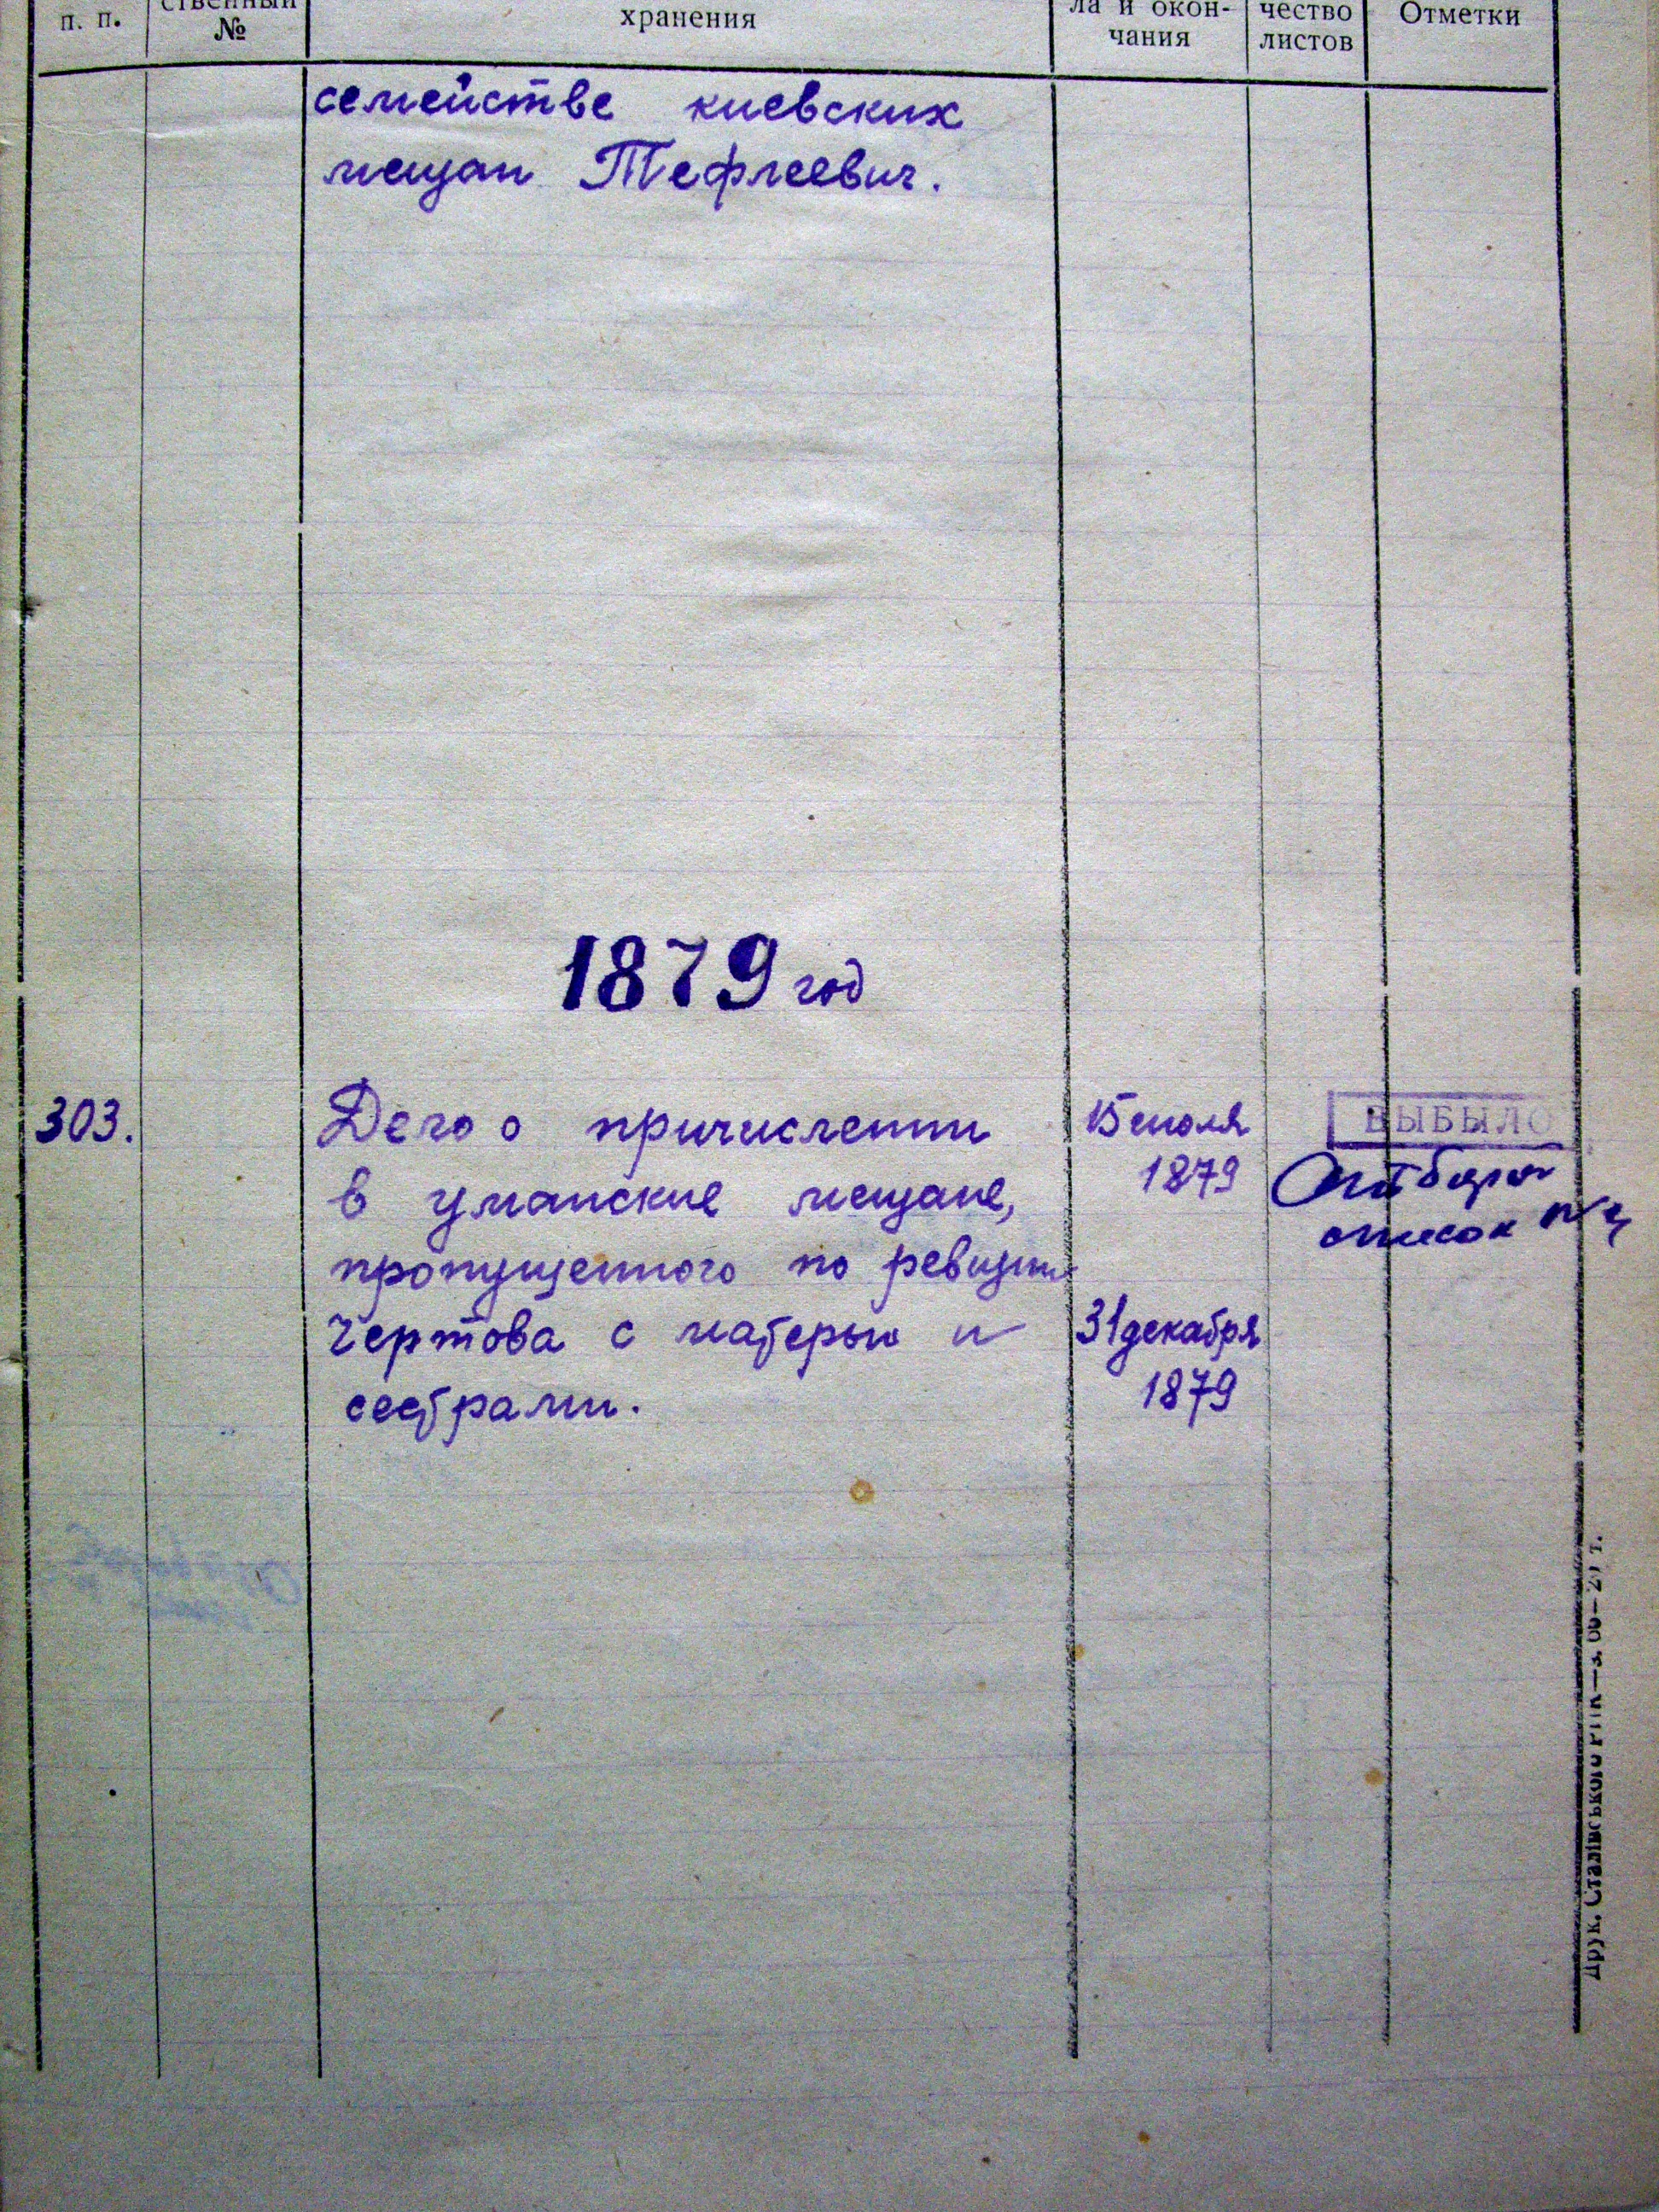 п. п.
ственный
№
хранения
ла и окон-
чания
чество
листов
Отметки
семействе киевских
мещан Тефлеевич.
1879 год
303.
Дело о причислении
в уманские мещане,
пропущенного по ревизии
Чертова с матерью и
сестрами.
15 июля
1879
31 декабря
1879
ВЫБЫЛО
список
Друк. Сталінського